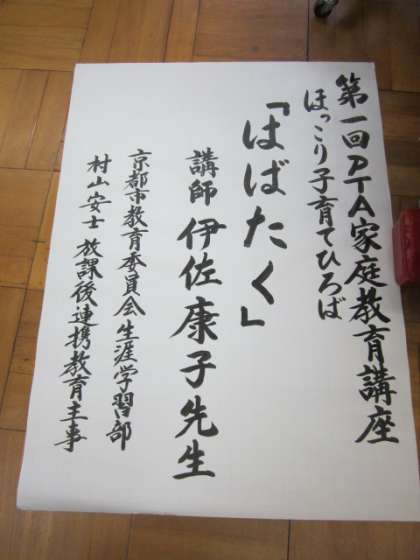 第一回PTA家庭教育講座
ほっこり子育てひろば
「はばたく」
講師 伊佐康子先生
京都市教育委員会生涯学習部
村山安士 放課後連携教育主事